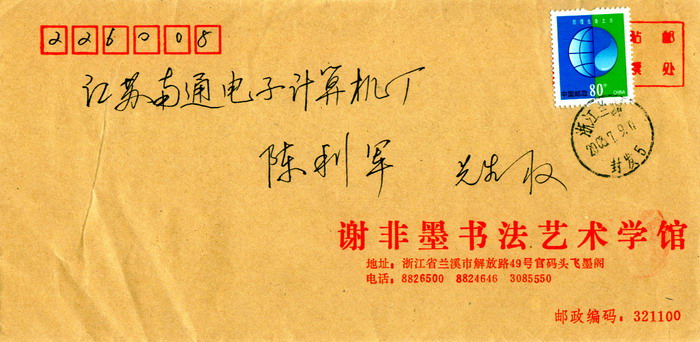 226008
贴邮
票处
中国邮政 80分 CHINA
浙江兰溪
2003.7.9.
封发5
江苏南通电子计算机厂
陈利军 先生收
谢非墨书法艺术学馆
地址：浙江省兰溪市解放路49号官码头飞墨阁
电话：8826500 8824646 3085550
邮政编码：321100